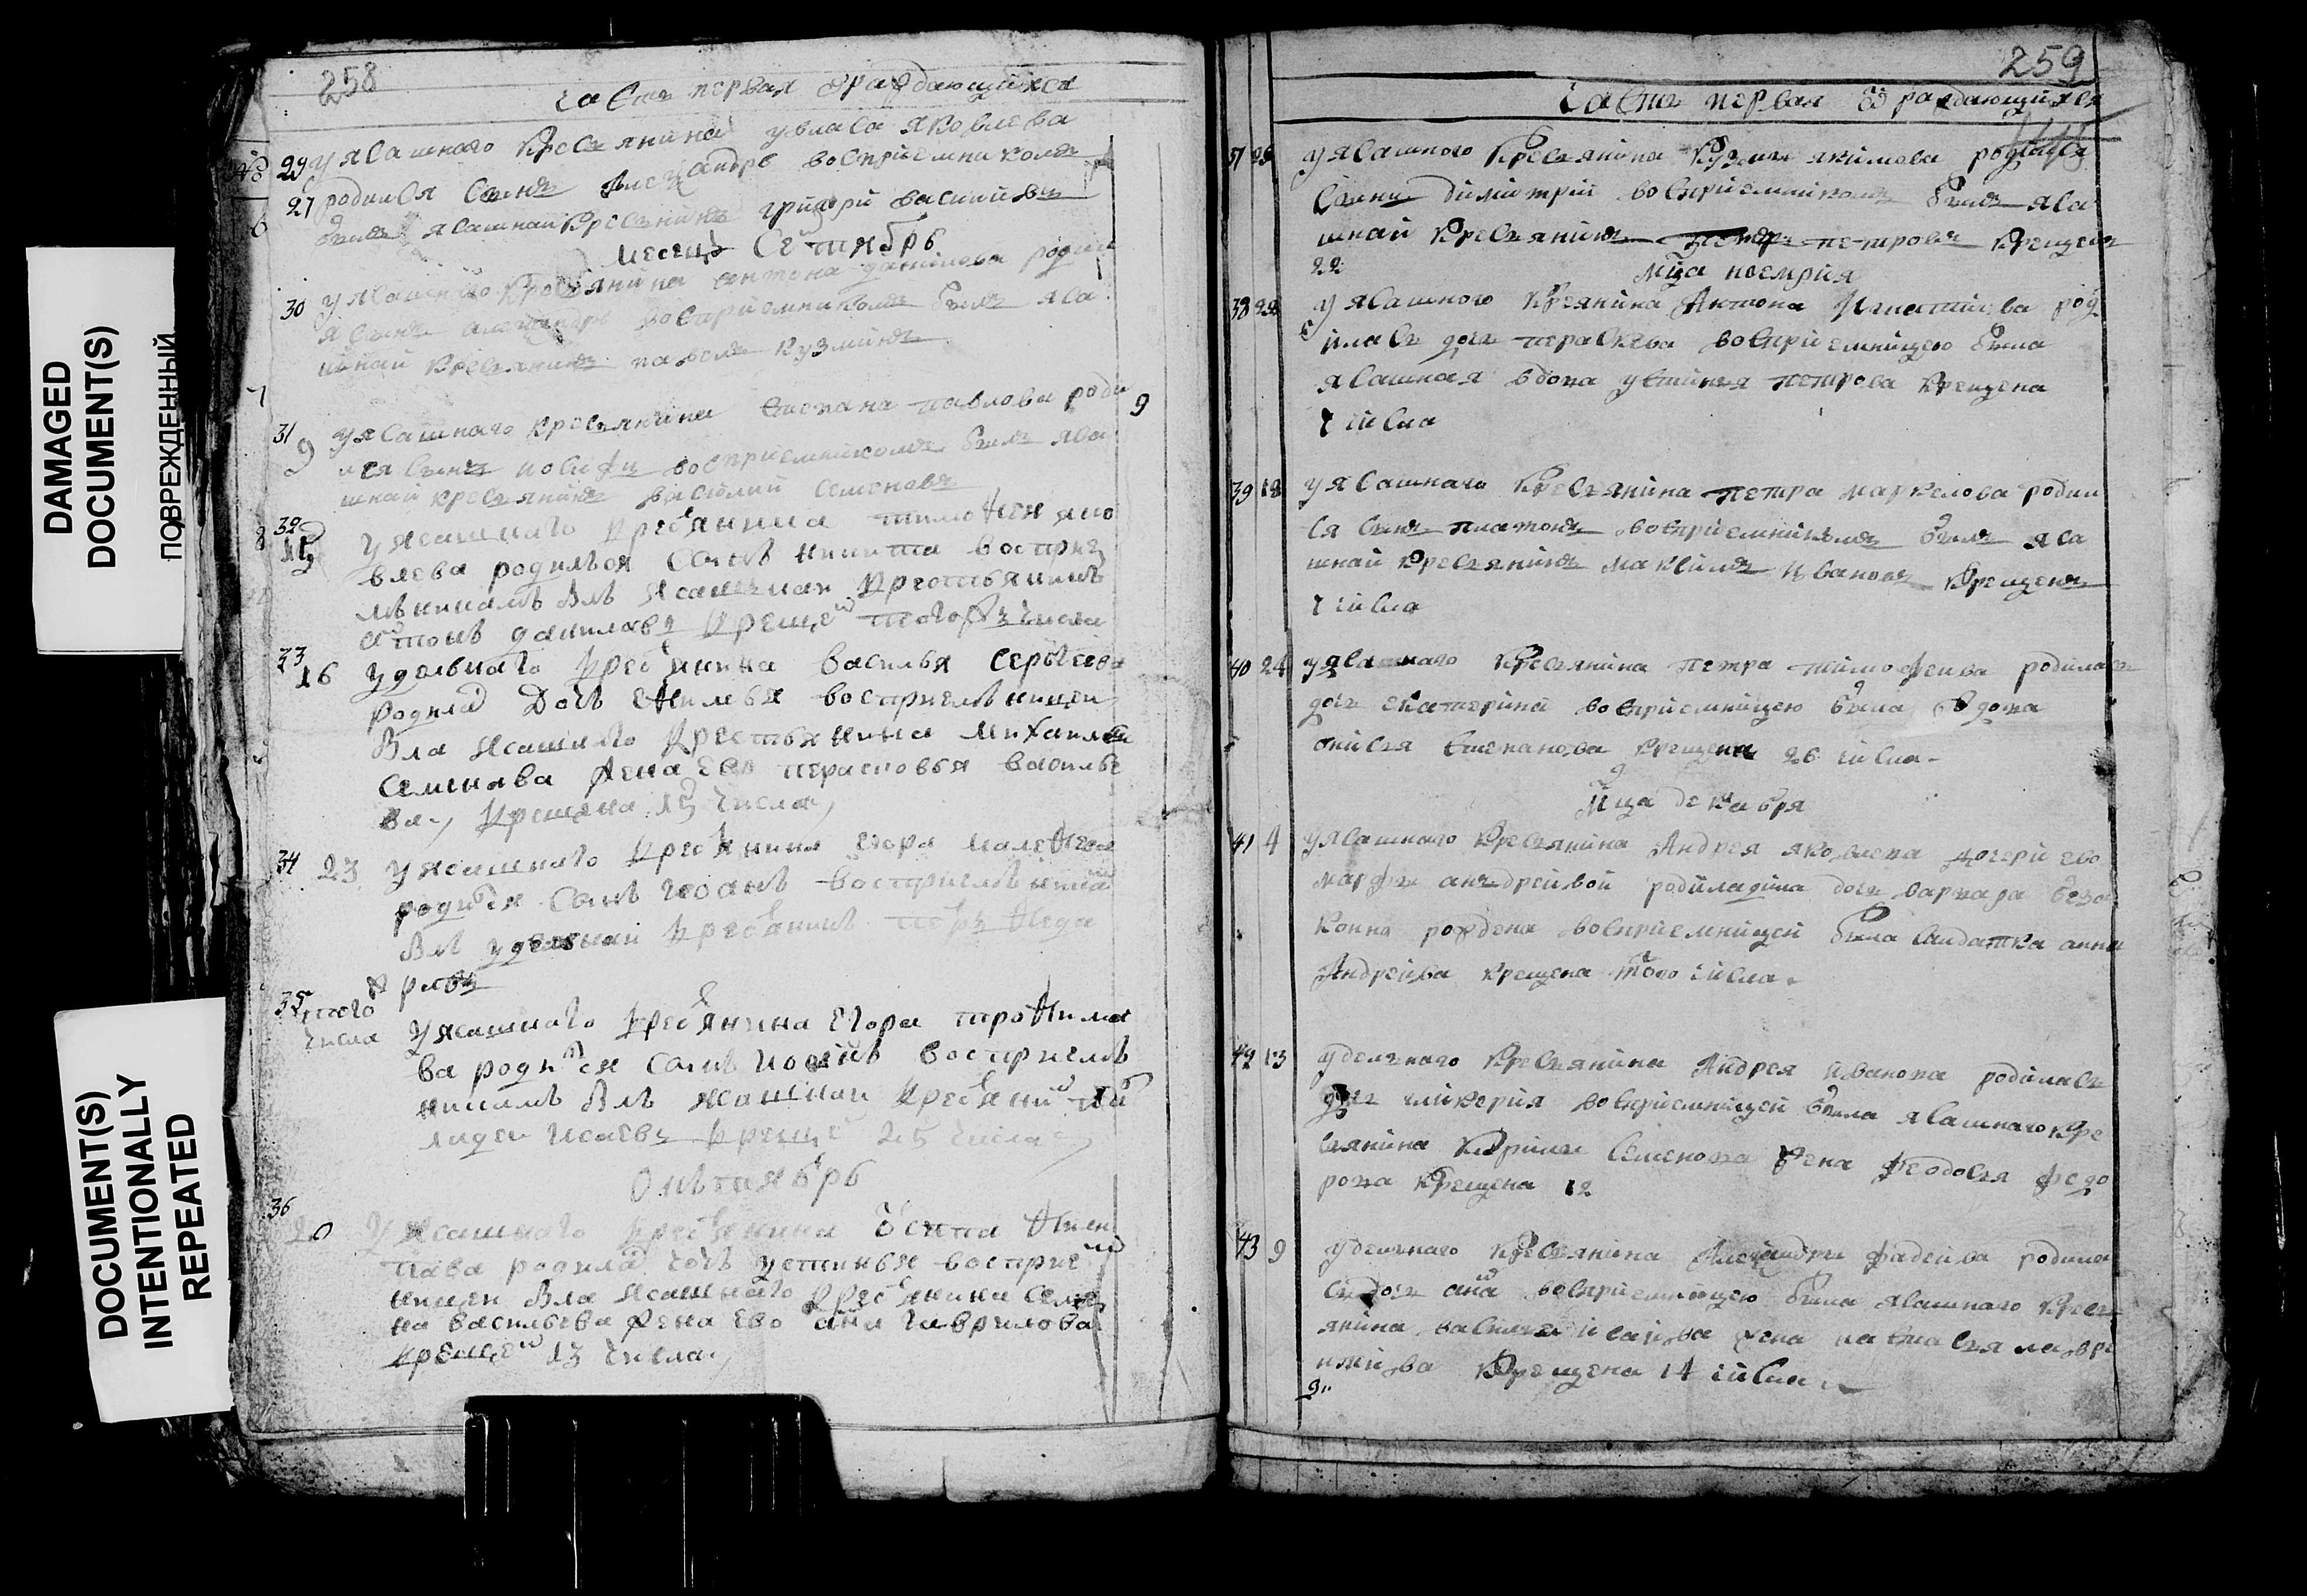 DAMAGED
DOCUMENT(S)
ПОВРЕЖДЕННЫЙ
DOCUMENT(S)
INTENTIONALLY
REPEATED
258
часть первая ѡраждающихся
29 у ясашнаго кресьянина увласа яковлева
27 родился сынъ александръ восприемникомъ
былъ ясашнай кресьнинъ григорй василивъ
месецъ сентябрь
30 у ясашнаго кресьянина антона данилова роди
я сынъ александръ восприемникомъ былъ яса
шнай кресьянинъ павелъ кузминъ
31 у ясашнаго кресьянина степана павлова роди 9
9 лся сынъ иосифъ восприемникомъ былъ яса
шнай кресьянинъ василий семеновъ
32 у ясашнаго кресьянина тимофея яко
15 влева родилься сынъ никита восприе
мъникамъ блъ ясашънаи крестьянинъ
антонъ даниловъ крещен тогожъ числа
33 удольнаго кресьянина василья сергеева
16 родила дочь офимья восприемъницеи
бла ясашнаго крестьянина михаила
семенава жена ево перасковья василье
ва, крещена 15 числа,
34 23 у ясашнаго кресьянина егора малофеева
родился сынъ иоанъ восприемъникам
блъ удельнаи кресьянинъ петръ феда
ровъ
35 того у ясашнаго кресьянина егора трофима
числа ва родился сынъ иосифъ восприемъ
никамъ блъ ясашнаи кресьянин
исаевъ крещен 25 числа
октябрь
36 у ясашнаго кресьянина осипа фили
20 пава родила дочь устинья восприем
ницеи бла ясашнаго кресьянина семе
на васильева жена ево ана гаврилова
крещен 13 числа,
259
часть первая ѡ раждающихся
37 у ясашного кресьянина кузмы якимова родился
сынъ димитрий восприемникомъ былъ яса
шнай кресьянинъ петръ петровъ крещенъ
22 мца ноемрия
38 у ясашного кресянина антона игнатиева род
илась дочь пераскева восприемницею была
ясашная вдова устинья петрова крещена
числа
39 у ясашнаго кресьянина петра маркелова родил
ся сынъ платонъ восприемникомъ былъ яса
шнай кресьянинъ максимъ ивановъ крещенъ
числа
40 24 у ясашнаго кресьянина петра тимофеива родилась
дочь екатерина восприемницею была вдова
анисья степанова крещена 26 числа
мца декабря
41 4 у ясашнаго кресьянина андрея яковлева дочери ево
марфы анъдреивой родиладина дочь варвара безза
конна рождена восприемницей была салдатка анна
андреива крещена того числа
42 13 у делънаго кресьянина андрея иванова родилась
дочь гликерия восприемницей была ясашнаго кре
сьянина кирилы семенова жена феодосья федо
рова крещена 12
43 9 у делънаго кресьянина александры фадеива родила
сь дочь анна восприемницею была ясашнаго кресь
янина василья исаива жена настасья лавре
нтива крещена 14 числа
9